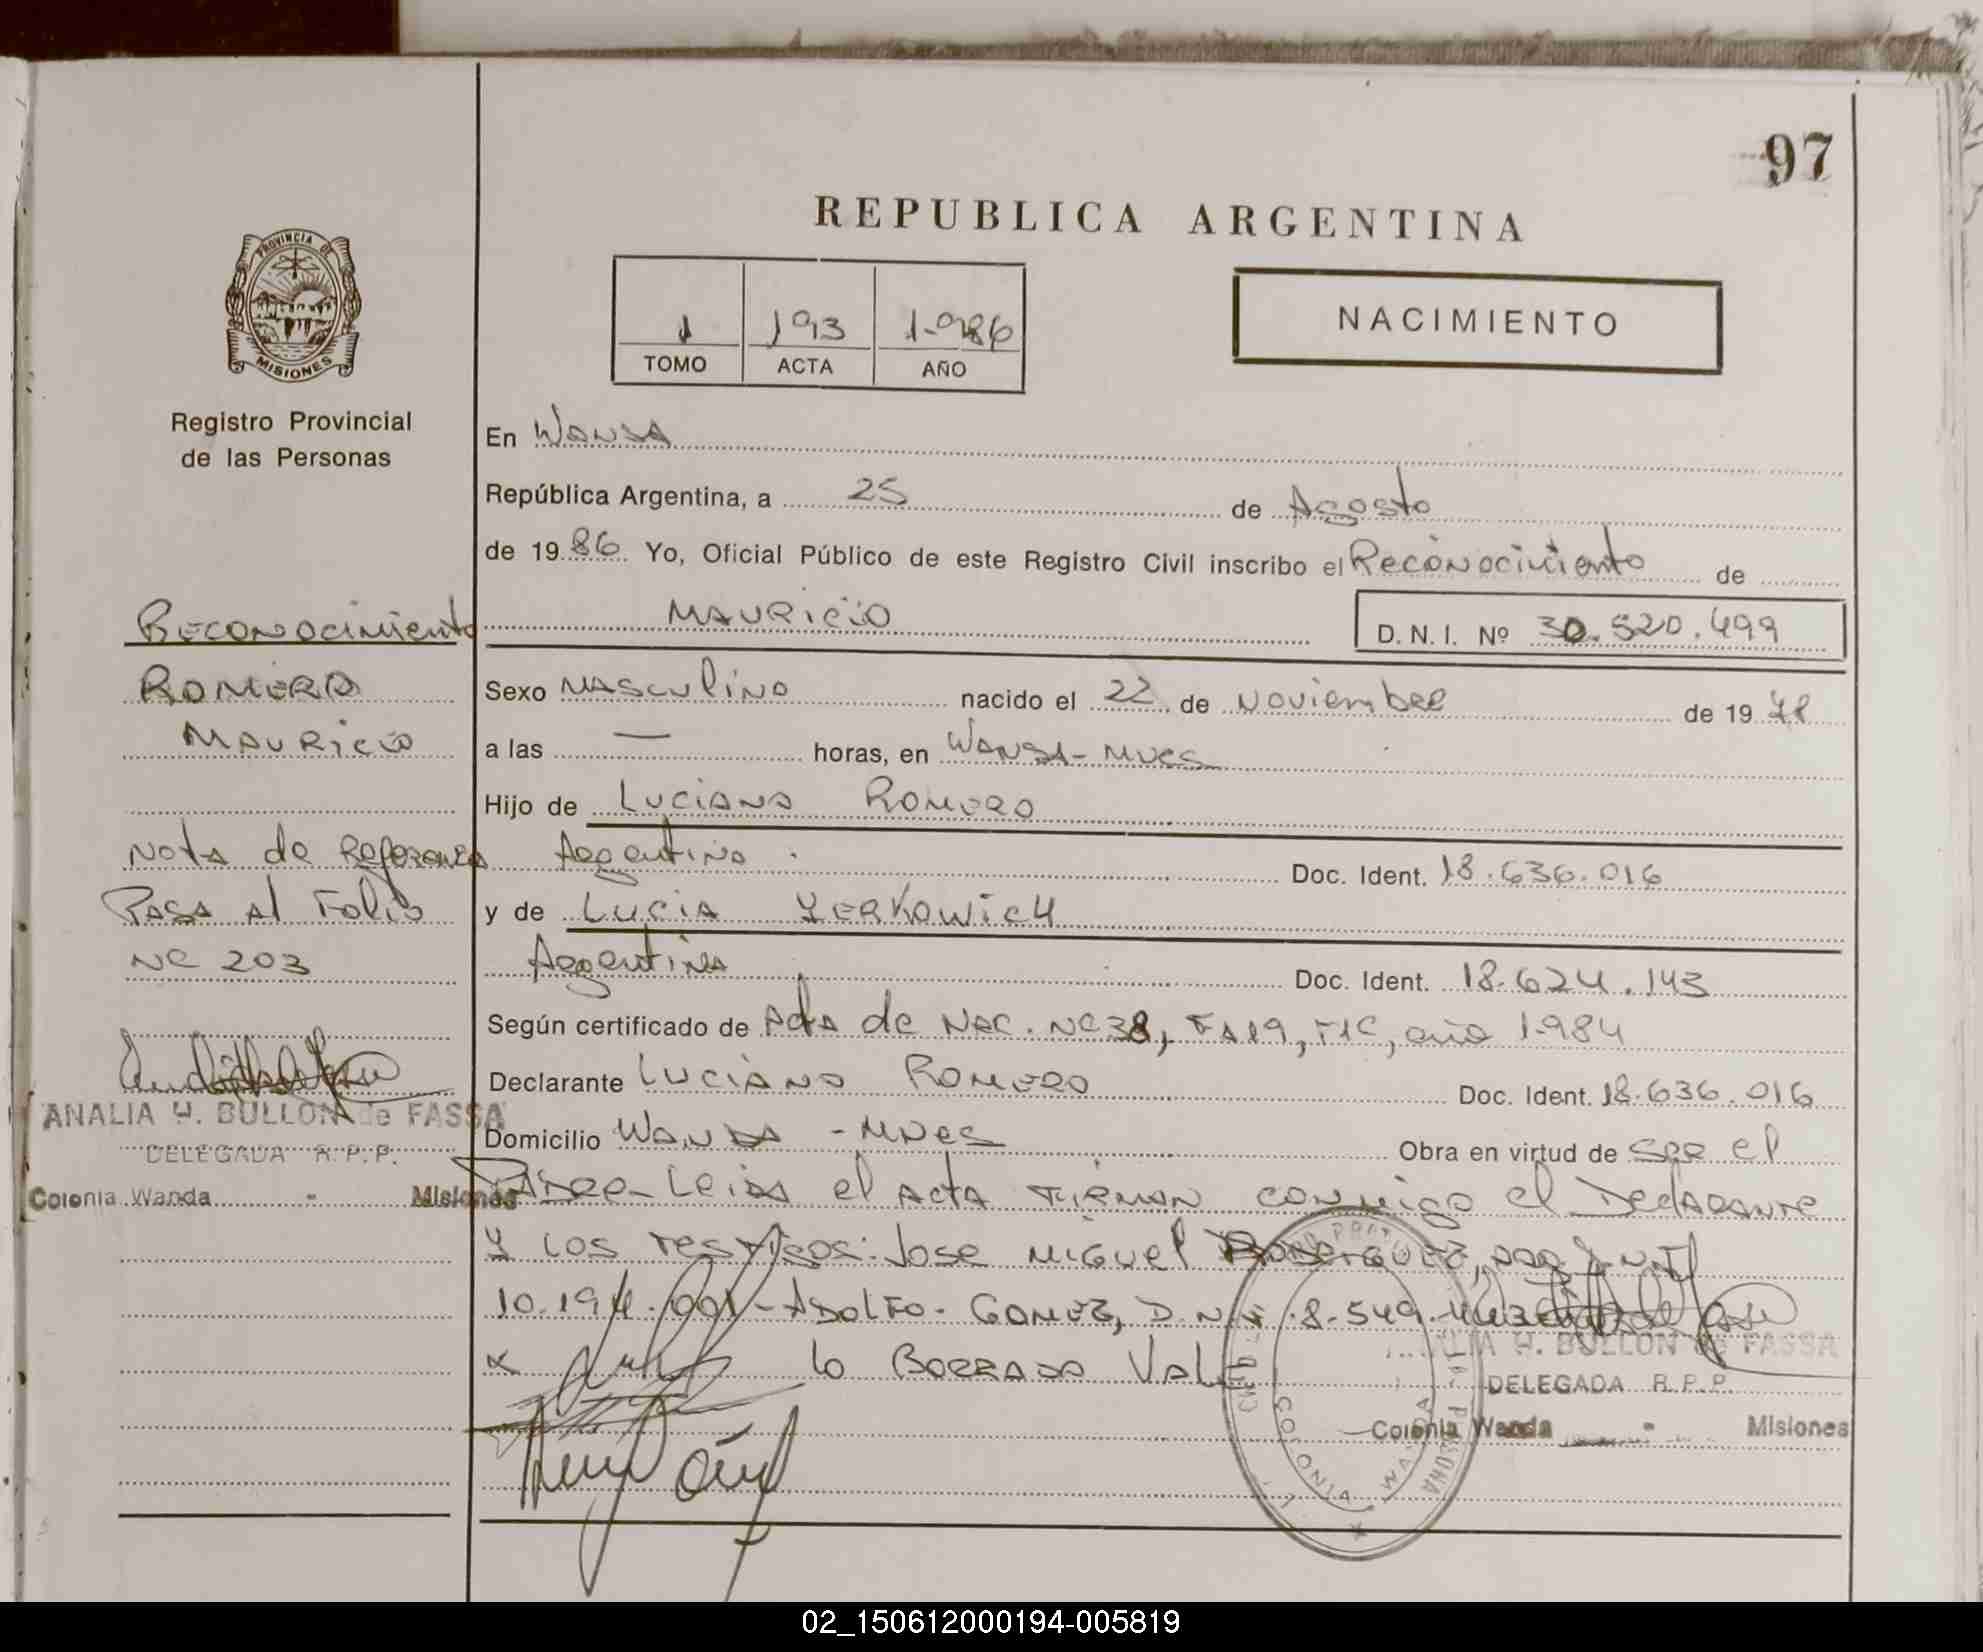 97
REPUBLICA ARGENTINA
PROVINCIA DE
MISIONES
Registro Provincial
de las Personas
1 193 1.986
TOMO ACTA AÑO
NACIMIENTO
En Wanda
República Argentina, a 25 de Agosto
de 1986 Yo, Oficial Público de este Registro Civil inscribo el Reconocimiento de
MAURICIO D.N.I. Nº 30.520.499
Sexo MASCULINO nacido el 22 de Noviembre de 19
a las — horas, en WANDA-MNES
Hijo de LUCIANO ROMERO
Argentino. Doc. Ident. 18.636.016
y de LUCIA YERKOWICH
Argentina Doc. Ident. 18.624.143
Según certificado de Acta de NAC. Nº 38, Fº 19, año 1984
Declarante LUCIANO ROMERO Doc. Ident. 18.636.016
Domicilio WANDA - MNES Obra en virtud de SER el
PADRE- LEIDA el ACTA FIRMAN CONMIGO el DECLARANTE
Y LOS TESTIGOS: Jose MIGUEL RODRIGUEZ,
10.194.001-ADOLFO. GOMEZ, D.N.I. 8.549.443
lo BORRADO VALE
RECONOCIMIENTO
ROMERO
MAURICIO
NOTA de Referencia
PASA Al FOLIO
Nº 203
ANALIA H. BULLON de FASSA
DELEGADA R.P.P.
Colonia Wanda - Misiones
ANALIA H. BULLON de FASSA
DELEGADA R.P.P.
Colonia Wanda - Misiones
COLONIA WANDA
02_150612000194-005819